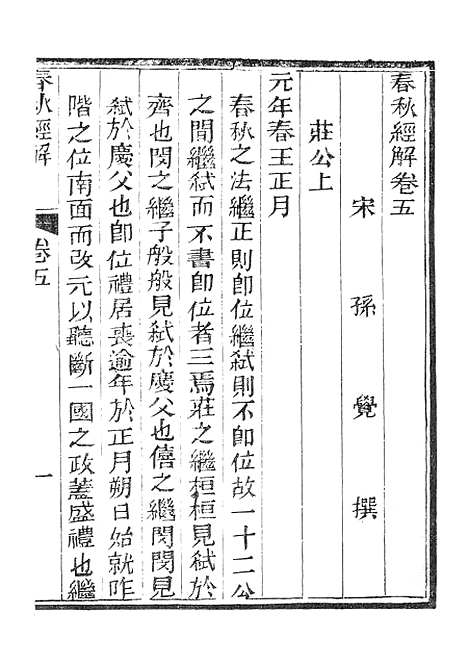 春秋經解卷五
宋孫覺撰
莊公上
元年春王正月
春秋之法繼正則卽位繼弑則不卽位故一十二公
之間繼弑而不書卽位者三焉莊之繼桓桓見弑於
齊也閔之繼子般般見弑於慶父也僖之繼閔閔見
弑於慶父也卽位禮居喪逾年於正月朔日始就阼
階之位南面而改元以聽斷一國之政蓋盛禮也繼
春秋經解
卷五
一